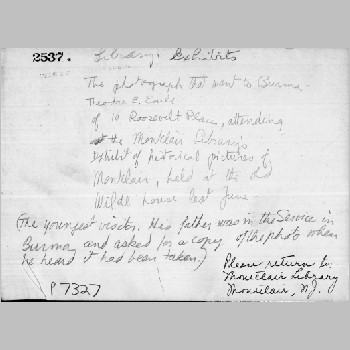 2537. Library: Exhibits
The photograph that went to Burma.
Theodore E. Earle
of 10 Roosevelt Place, attending
the Montclair Library's
Exhibit of historical pictures of
Montclair, held at the old
Wilde house last June
(The youngest visitor. His father was in the Service in
Burma, and asked for a copy of the photo when
he heard it had been taken.)
Please return to
Montclair Library
Montclair, N.J.
P7327